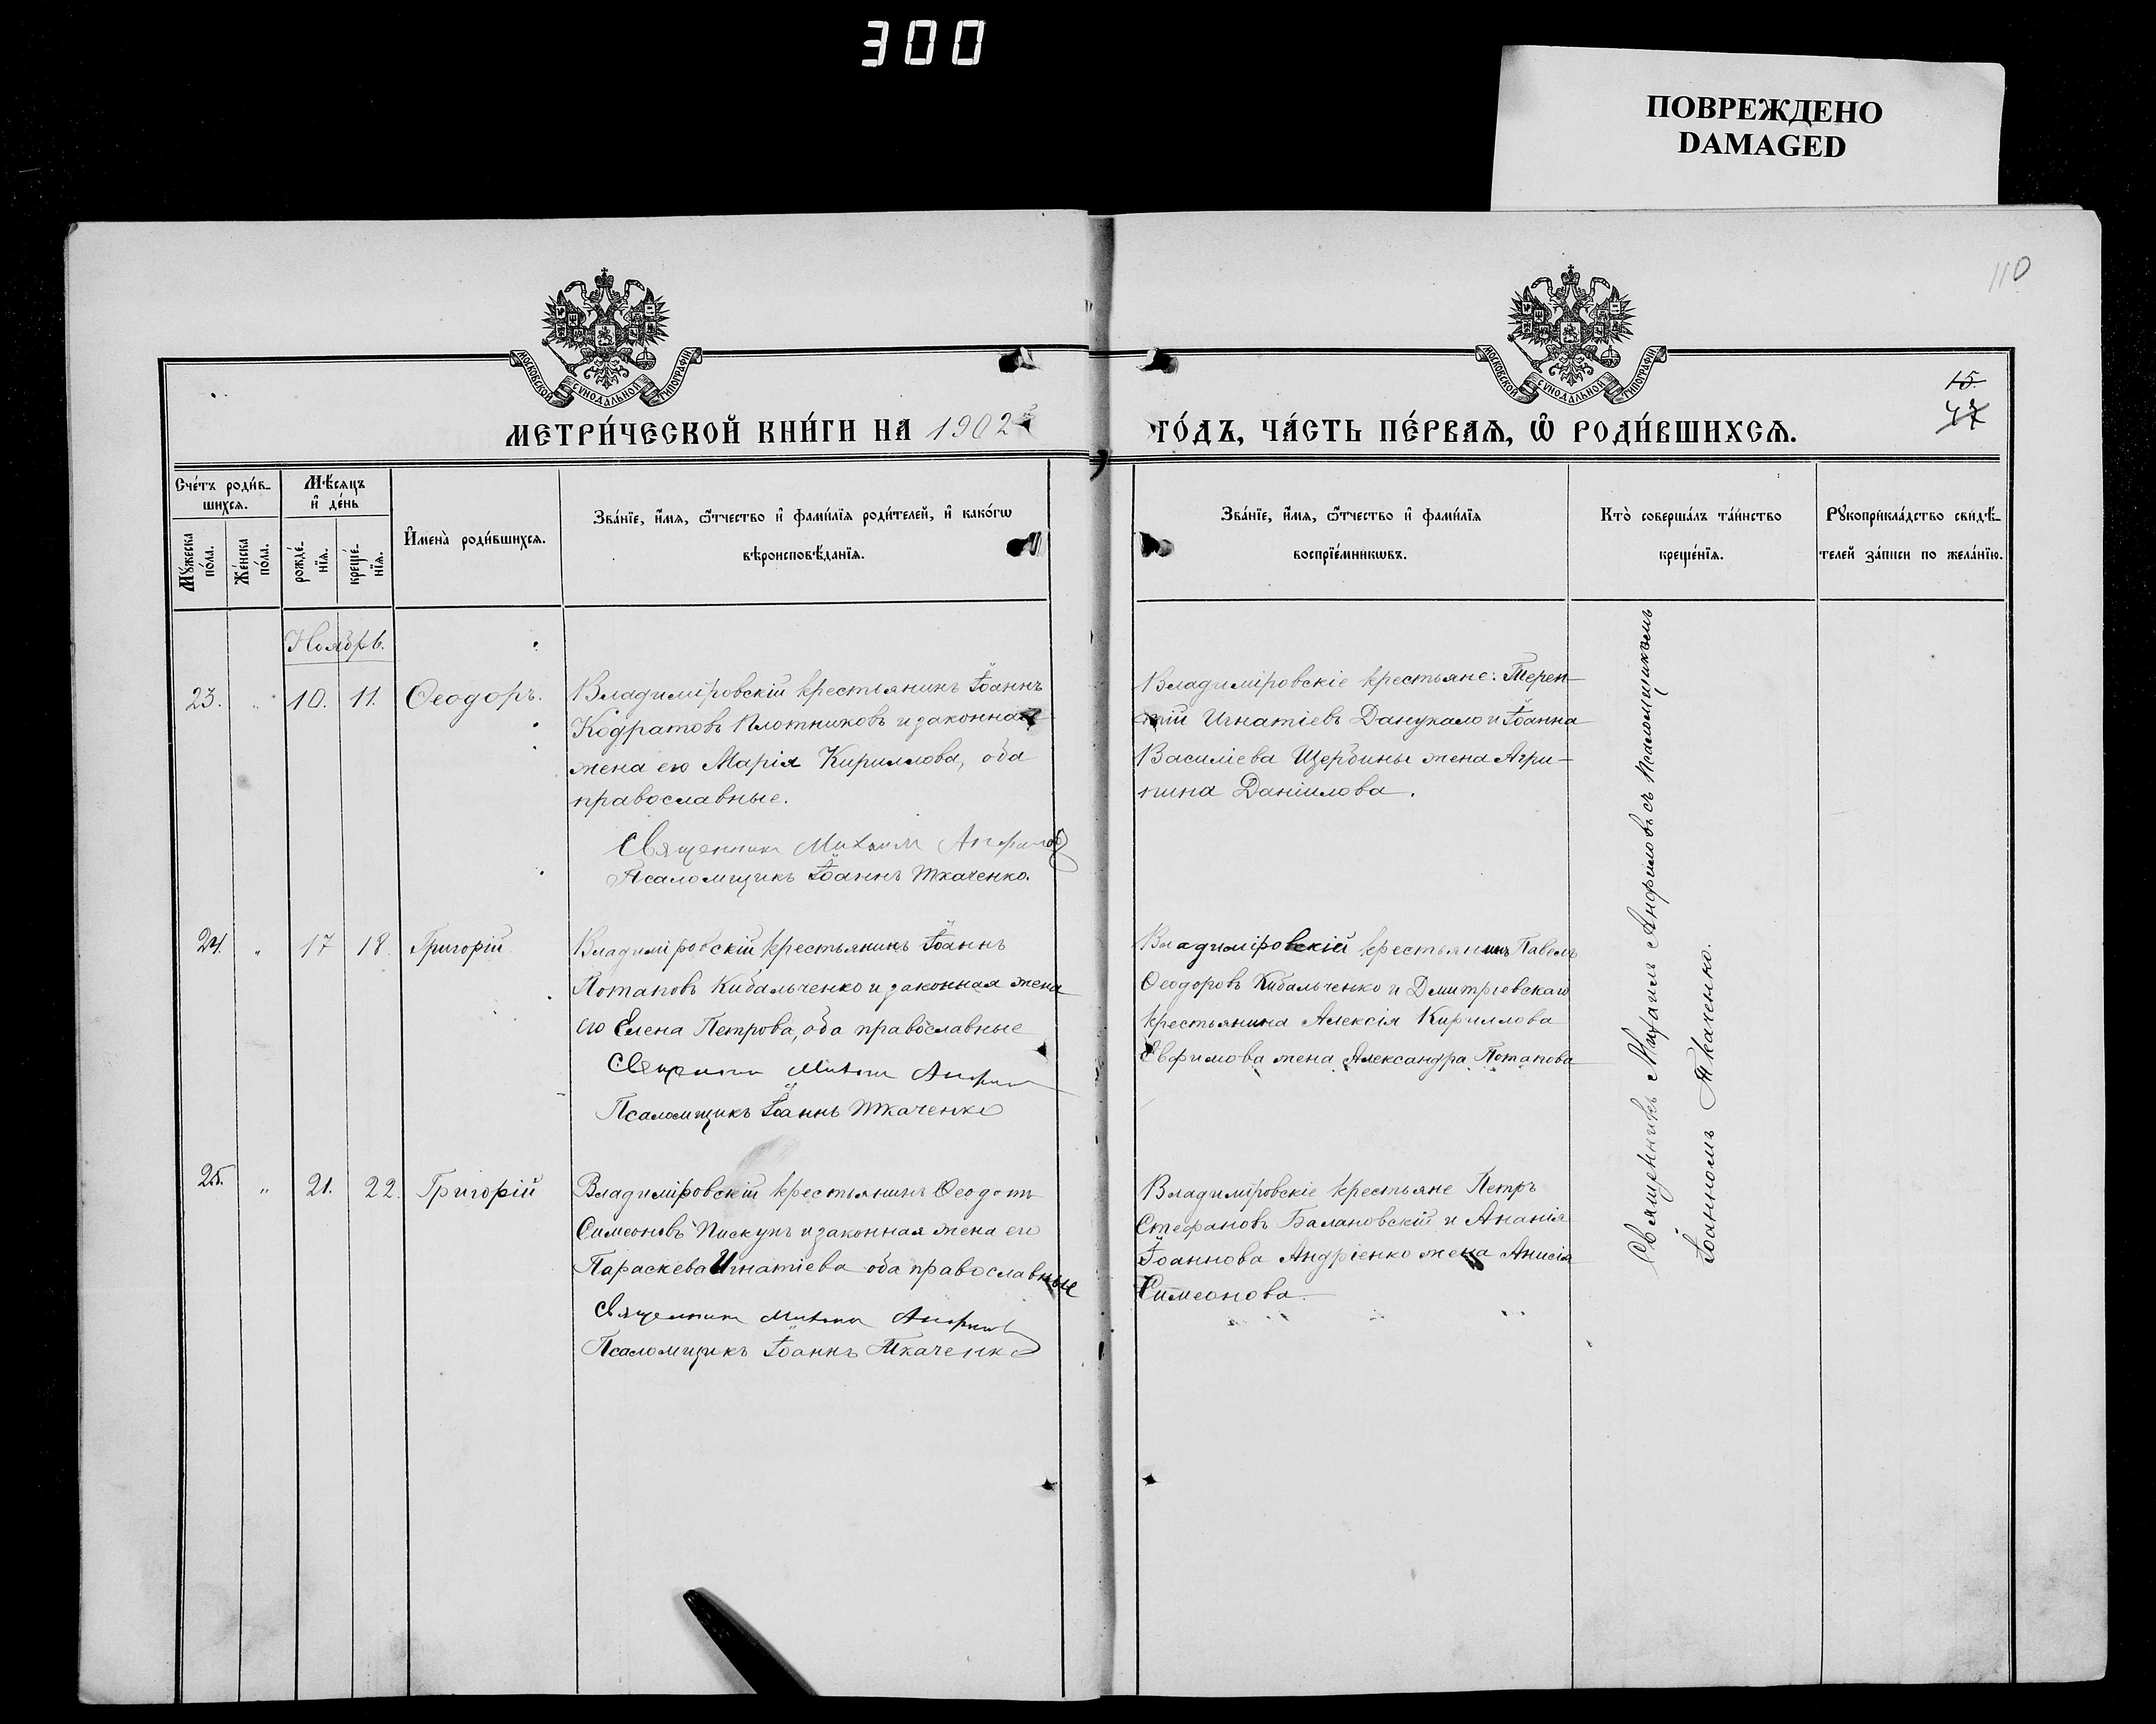 300
ПОВРЕЖДЕНО
DAMAGED
110
МОСКОВСКОЙ СѴНОДАЛЬНОЙ ТИПОГРАФІИ
МОСКОВСКОЙ СѴНОДАЛЬНОЙ ТИПОГРАФІИ
15
47
МЕТРИ́ЧЕСКОЙ КНИ́ГИ НА 1902
ГО́ДЪ, ЧА́СТЬ ПЕ́РВАѦ, Ѡ҆ РОДИ́ВШИХСѦ.
Сче́тъ роди́в-
шихсѧ.
Мѣ́сяцъ
и҆ де́нь
Мꙋ́жеска
по́ла.
Же́нска
по́ла.
рожде́-
нїѧ.
креще́-
нїѧ.
И҆мена̀ роди́вшихсѧ.
Зва́нїе, и҆́мѧ, ѻ҆́тчество и҆ фами́лїѧ роди́телей, и҆ како́гѡ
вѣроисповѣ́данїѧ.
Зва́нїе, и҆́мѧ, ѻ҆́тчество и҆ фами́лїѧ
воспрїе́мникѡвъ.
Кто̀ соверша́лъ та́инство
креще́нїѧ.
Рꙋкоприкла́дство свидѣ́-
телей за́писи по жела́нїю.
Ноябрь.
23. " 10. 11. Ѳеодоръ.
Владиміровскій крестьянинъ Іоаннъ
Кодратовъ Плотниковъ и законная
жена его Марія Кириллова, оба
православные.
Священник Михаил Анфилов
Псаломщикъ Іоаннъ Ткаченко.
Владиміровскіе крестьяне: Терен-
тій Игнатіевъ Данукало и Іоанна
Василіева Щербины жена Агри-
пина Даніилова.
24. " 17 18 Григорій
Владиміровскій крестьянинъ Іоаннъ
Потаповъ Кибальченко и законная жена
его Елена Петрова, оба православные
Священник Михаил Анфилов
Псаломщикъ Іоаннъ Ткаченко
Владиміровскій крестьянинъ Павелъ
Ѳеодоровъ Кибальченко и Дмитріевскаго
крестьянина Алексія Кириллова
Евфимова жена Александра Потапова
25. " 21. 22. Григорій
Владиміровскій крестьянинъ Ѳеодотъ
Симеоновъ Пискунъ и законная жена его
Параскева Игнатіева оба православные
Священник Михаил Анфилов
Псаломщикъ Іоаннъ Ткаченко
Владиміровскіе крестьяне Петръ
Стефановъ Балановскій и Ананія
Іоаннова Андріенко жена Анисія
Симеонова.
Священникъ Михаилъ Анфиловъ съ Псаломщикомъ
Іоанномъ Ткаченко.